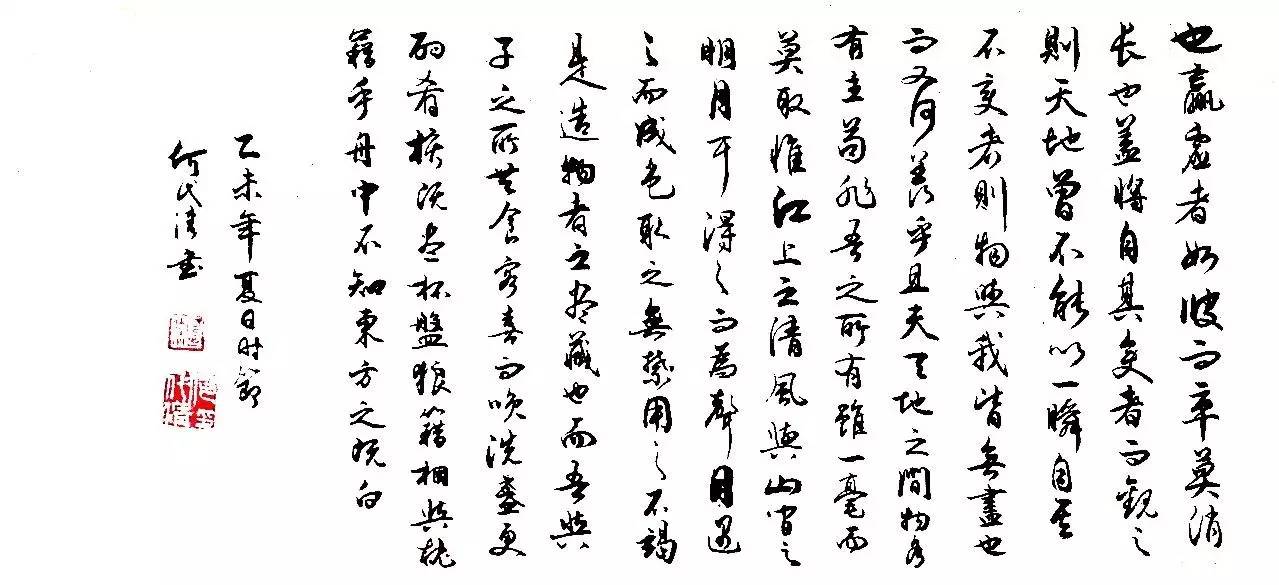 也贏虛者如彼而卒莫消
长也盖將自其变者而觀之
則天地曾不能以一瞬自其
不变者則物與我皆無盡也
而又何羨乎且夫天地之間物各
有主苟非吾之所有雖一毫而
莫取惟江上之清風與山間之
明月耳得之而為聲目遇
之而成色取之無禁用之不竭
是造物者之尽藏也而吾與
子之所共食客喜而笑洗盞更
酌肴核既尽杯盤狼籍相與枕
籍乎舟中不知東方之既白
乙未年夏日时節
何代清书